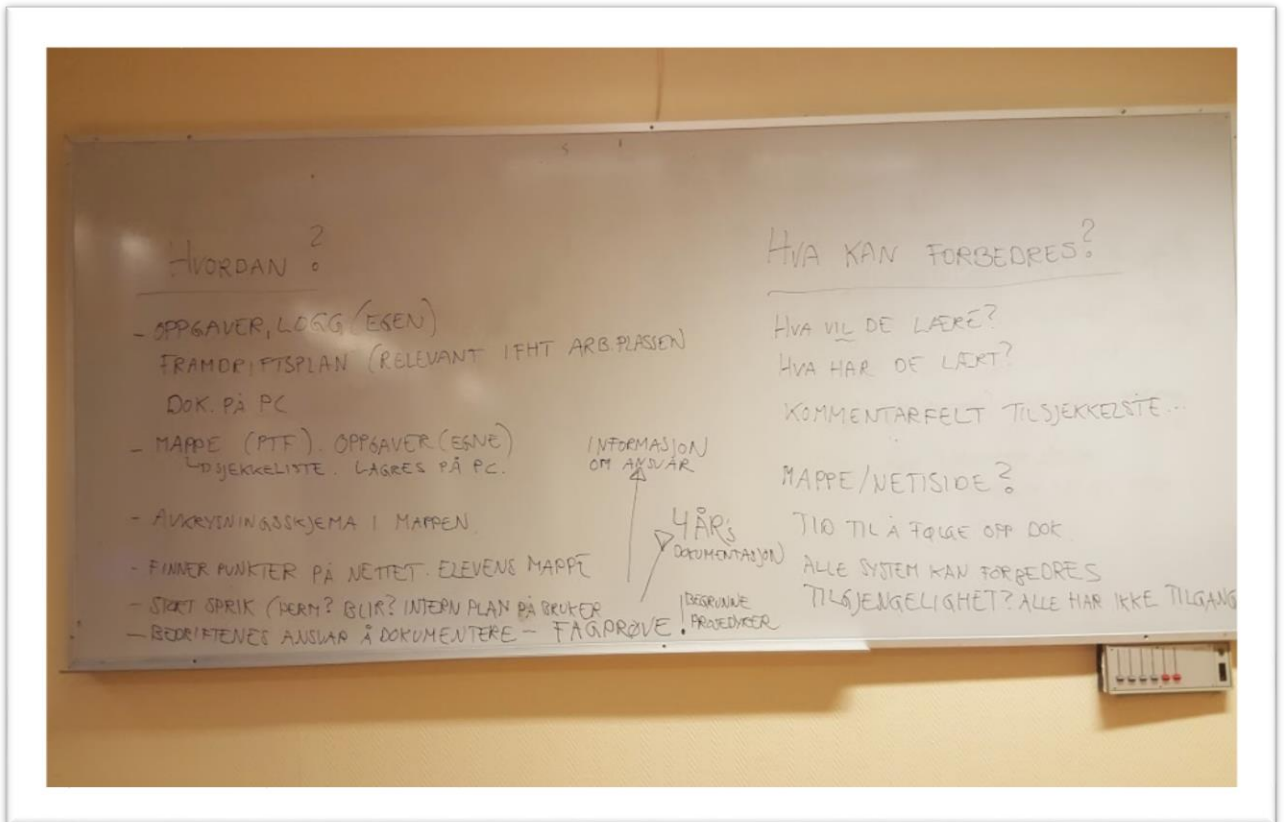 HVORDAN?
- OPPGAVER, LOGG (EGEN)
FRAMDRIFTSPLAN (RELEVANT IFHT ARB.PLASSEN
DOK. PÅ PC
- MAPPE (PTF). OPPGAVER (EGNE)
SJEKKELISTE. LAGRES PÅ PC.
- AVKRYSNINGSSKJEMA I MAPPEN.
- FINNER PUNKTER PÅ NETTET. ELEVENS MAPPE
- STORT SPRIK (PERM? BLIR? INTERN PLAN PÅ BRUKER
- BEDRIFTENES ANSVAR Å DOKUMENTERE - FAGPRØVE!
INFORMASJON
OM ANSVAR
4 ÅR's
DOKUMENTASJON
BEGRUNNE
PROSEDYRER
HVA KAN FORBEDRES?
HVA VIL DE LÆRE?
HVA HAR DE LÆRT?
KOMMENTARFELT
MAPPE/NETTSIDE?
TID TIL Å FØLGE OPP DOK.
ALLE SYSTEM KAN FORBEDRES
TILGJENGELIGHET? ALLE HAR IKKE TILGANG